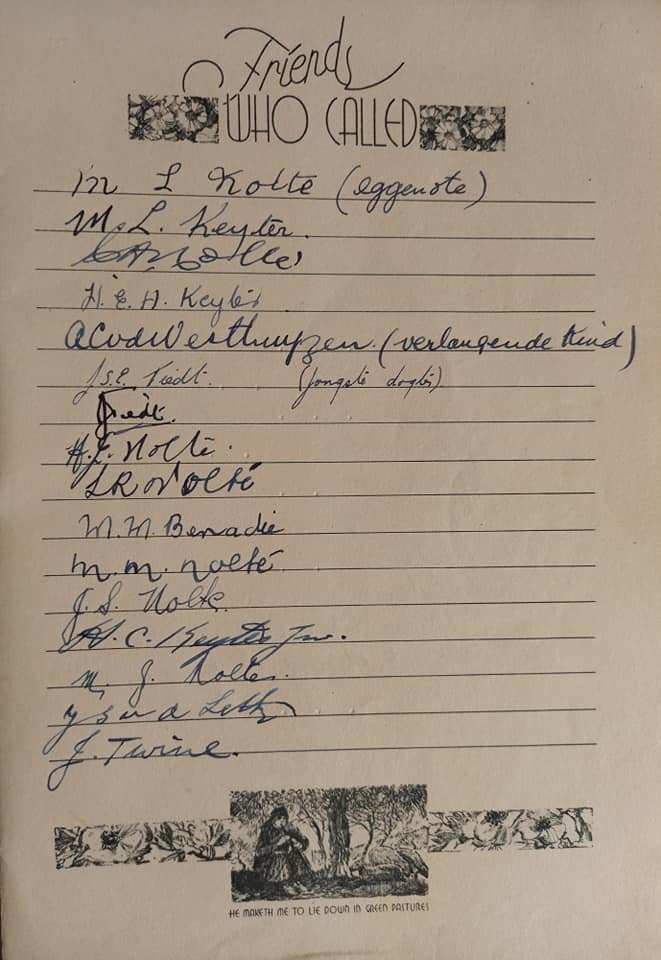 Friends
WHO CALLED
M L Nolte (eggenote)
M. L. Keyter.
H. E. H. Keyter
A C v d Westhuyzen. (verlangende kind)
J. S. E. Tiedt. (jongste dogter)
Tiedt.
H. E. Nolte.
L R Nolté
M. M. Benadie
M. M. Nolté
J. S. Nolte.
H. C. Keyter Jnr.
M. J. Nolte.
J. Twine.
HE MAKETH ME TO LIE DOWN IN GREEN PASTURES